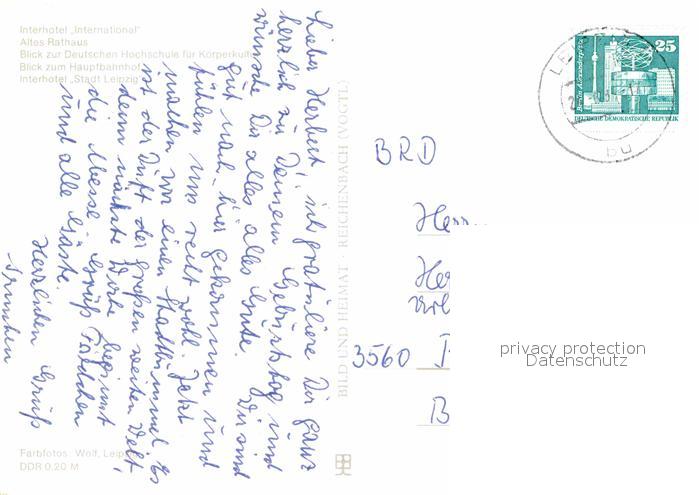 Interhotel „International"
Altes Rathaus
Blick zur Deutschen Hochschule für Körperkultur
Blick zum Hauptbahnhof
Interhotel „Stadt Leipzig"
Lieber Herbert, ich gratuliere Dir ganz
herzlich zu Deinem Geburtstag und
wünsche Dir alles alles Gute. Wir sind
gut nach hier gekommen und
fühlen uns recht wohl. Jetzt
machen wir einen Stadtbummel. Es
ist der Duft der großen weiten Welt,
denn nächste Woche beginnt
die Messe. Grüß
und alle Gäste.
Herzlichen Gruß
Farbfotos Wolf, Leipzig
DDR 0,20 M
BILD UND HEIMAT · REICHENBACH (VOGTL)
25
Berlin, Alexanderplatz
DEUTSCHE DEMOKRATISCHE REPUBLIK
LEIPZIG
bu
BRD
Herrn
He
3560
B
privacy protection
Datenschutz